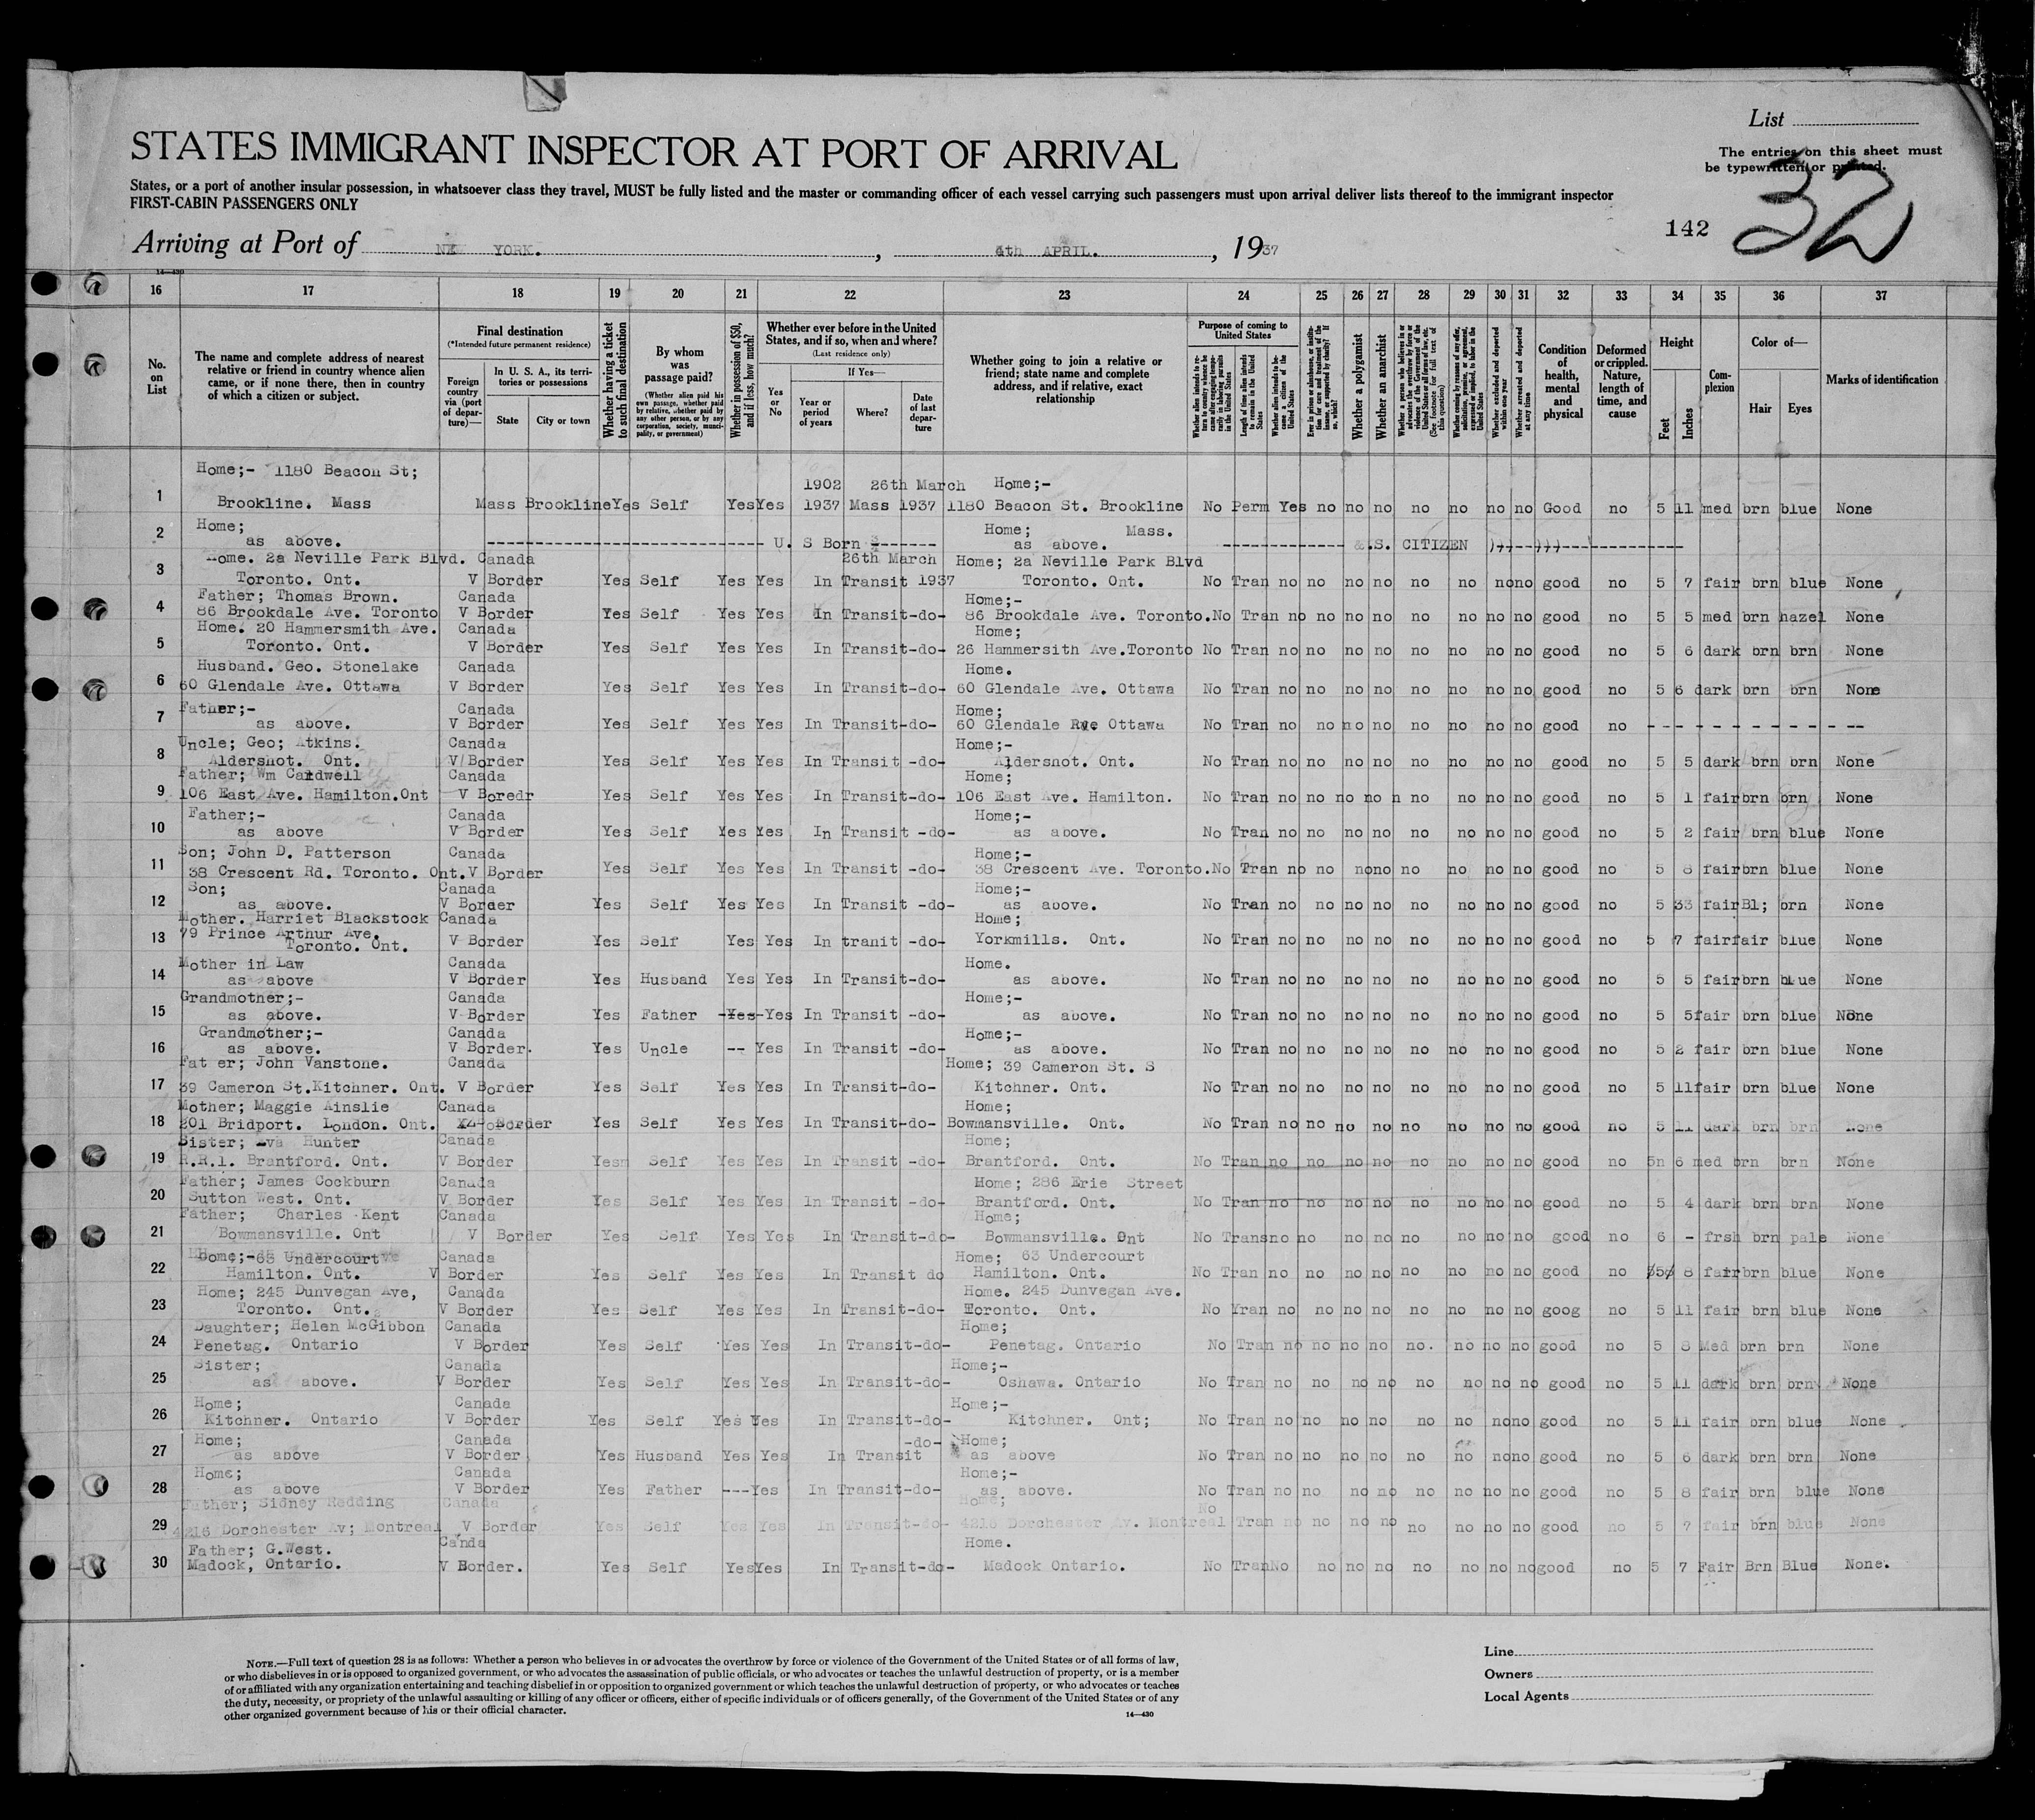 List
STATES IMMIGRANT INSPECTOR AT PORT OF ARRIVAL
The entries on this sheet must
be typewritten or printed.
States, or a port of another insular possession, in whatsoever class they travel, MUST be fully listed and the master or commanding officer of each vessel carrying such passengers must upon arrival deliver lists thereof to the immigrant inspector
FIRST-CABIN PASSENGERS ONLY
142 32
Arriving at Port of YORK. , 6th APRIL. , 1937
14—430
16 17 18 19 20 21 22 23 24 25 26 27 28 29 30 31 32 33 34 35 36 37
No. on List
The name and complete address of nearest relative or friend in country whence alien came, or if none there, then in country of which a citizen or subject.
Final destination
(*Intended future permanent residence)
Foreign country via (port of departure)—
In U. S. A., its territories or possessions
State
City or town
Whether having a ticket to such final destination
By whom was passage paid?
(Whether alien paid his own passage, whether paid by relative, whether paid by any other person, or by any corporation, society, municipality, or government)
Whether in possession of $50, and if less, how much?
Whether ever before in the United States, and if so, when and where?
(Last residence only)
Yes or No
If Yes—
Year or period of years
Where?
Date of last departure
Whether going to join a relative or friend; state name and complete address, and if relative, exact relationship
Purpose of coming to United States
Length of time alien intends to remain in the United States
Whether alien intends to become a citizen of the United States
Whether a polygamist
Whether an anarchist
Whether excluded and deported within one year
Whether arrested and deported at any time
Condition of health, mental and physical
Deformed or crippled. Nature, length of time, and cause
Height
Feet
Inches
Complexion
Color of—
Hair
Eyes
Marks of identification
Home;- 1180 Beacon St; 1902 26th March Home;-
1 Brookline. Mass Mass Brookline Yes Self Yes Yes 1937 Mass 1937 1180 Beacon St. Brookline No Perm Yes no no no no no no no Good no 5 11 med brn blue None
Home; Home; Mass.
2 as above. U. S Born as above. .S. CITIZEN
Home. 2a Neville Park Blvd. Canada 26th March Home; 2a Neville Park Blvd
3 Toronto. Ont. V Border Yes Self Yes Yes In Transit 1937 Toronto. Ont. No Tran no no no no no no no no good no 5 7 fair brn blue None
Father; Thomas Brown. Canada Home;-
4 86 Brookdale Ave. Toronto V Border Yes Self Yes Yes In Transit-do- 86 Brookdale Ave. Toronto. No Tran no no no no no no no no good no 5 5 med brn hazel None
Home. 20 Hammersmith Ave. Canada Home;
5 Toronto. Ont. V Border Yes Self Yes Yes In Transit-do- 26 Hammersith Ave.Toronto No Tran no no no no no no no no good no 5 6 dark brn brn None
Husband. Geo. Stonelake Canada Home.
6 60 Glendale Ave. Ottawa V Border Yes Self Yes Yes In Transit-do- 60 Glendale Ave. Ottawa No Tran no no no no no no no no good no 5 6 dark brn brn None
Father;- Canada Home;
7 as above. V Border Yes Self Yes Yes In Transit-do- 60 Glendale Ave Ottawa No Tran no no no no no no no no good no - - - - - - - - - - -
Uncle; Geo; Atkins. Canada Home;-
8 Aldershot. Ont. V Border Yes Self Yes Yes In Transit -do- Aldershot. Ont. No Tran no no no no no no no no good no 5 5 dark brn brn None
Father; Wm Cardwell Canada Home;
9 106 East Ave. Hamilton.Ont V Boredr Yes Self Yes Yes In Transit-do- 106 East Ave. Hamilton. No Tran no no no no n no no no no good no 5 1 fair brn brn None
Father;- Canada Home;-
10 as above V Border Yes Self Yes Yes In Transit -do- as above. No Tran no no no no no no no no good no 5 2 fair brn blue None
Son; John D. Patterson Canada Home;-
11 38 Crescent Rd. Toronto. Ont. V Border Yes Self Yes Yes In Transit -do- 38 Crescent Ave. Toronto. No Tran no no no no no no no no good no 5 8 fair brn blue None
Son; Canada Home;-
12 as above. V Border Yes Self Yes Yes In Transit -do- as above. No Tran no no no no no no no no good no 5 fair Bl; brn None
Mother. Harriet Blackstock Canada Home;
79 Prince Arthur Ave.
13 Toronto. Ont. V Border Yes Self Yes Yes In tranit -do- Yorkmills. Ont. No Tran no no no no no no no no good no 5 7 fair fair blue None
Mother in Law Canada Home.
14 as above V Border Yes Husband Yes Yes In Transit-do- as above. No Tran no no no no no no no no good no 5 5 fair brn blue None
Grandmother;- Canada Home;-
15 as above. V Border Yes Father -Yes-Yes In Transit -do- as above. No Tran no no no no no no no no good no 5 5 fair brn blue None
Grandmother;- Canada Home;-
16 as above. V Border. Yes Uncle -- Yes In Transit -do- as above. No Tran no no no no no no no no good no 5 2 fair brn blue None
Fat er; John Vanstone. Canada Home; 39 Cameron St. S
17 39 Cameron St.Kitchner. Ont. V Border Yes Self Yes Yes In Transit-do- Kitchner. Ont. No Tran no no no no no no no no good no 5 11 fair brn blue None
Mother; Maggie Ainslie Canada Home;
18 201 Bridport. London. Ont. Border Yes Self Yes Yes In Transit-do- Bowmansville. Ont. No Tran no no no no no no no no good no 5 11 dark brn brn None
Sister; Eva Hunter Canada Home;
19 R.R.1. Brantford. Ont. V Border Yes Self Yes Yes In Transit -do- Brantford. Ont. No Tran no no no no no no no no good no 5 6 med brn brn None
Father; James Cockburn Canada Home; 286 Erie Street
20 Sutton West. Ont. V Border Yes Self Yes Yes In Transit -do- Brantford. Ont. No Tran no no no no no no no no good no 5 4 dark brn brn None
Father; Charles Kent Canada Home;
21 Bowmansville. Ont V Border Yes Self Yes Yes In Transit-do- Bowmansville. Ont No Trans no no no no no no no no good no 6 - frsh brn pale None
Home;-63 Undercourt Canada Home; 63 Undercourt
22 Hamilton. Ont. V Border Yes Self Yes Yes In Transit do Hamilton. Ont. No Tran no no no no no no no no good no 5 8 fair brn blue None
Home; 245 Dunvegan Ave, Canada Home. 245 Dunvegan Ave.
23 Toronto. Ont. V Border Yes Self Yes Yes In Transit-do- Toronto. Ont. No Tran no no no no no no no no goog no 5 11 fair brn blue None
Daughter; Helen McGibbon Canada Home;
24 Penetag. Ontario V Border Yes Self Yes Yes In Transit-do- Penetag. Ontario No Tran no no no no no. no no no good no 5 8 Med brn brn None
Sister; Canada Home;-
25 as above. V Border Yes Self Yes Yes In Transit-do- Oshawa. Ontario No Tran no no no no no no no no good no 5 11 dark brn brn None
Home; Canada Home;-
26 Kitchner. Ontario V Border Yes Self Yes Yes In Transit-do- Kitchner. Ont; No Tran no no no no no no no no good no 5 11 fair brn blue None
Home; Canada -do- Home;
27 as above V Border Yes Husband Yes Yes In Transit as above No Tran no no no no no no no no good no 5 6 dark brn brn None
Home; Canada Home;-
28 as above V Border Yes Father ---Yes In Transit-do- as above. No Tran no no no no no no no no good no 5 8 fair brn blue None
Father; Sidney Redding Canada Home; No
29 4216 Dorchester Av; Montreal V Border Yes Self Yes Yes In Transit-do- 4216 Dorchester Av. Montreal Tran no no no no no no no no good no 5 7 fair brn blue None
Father; G.West. Canda Home.
30 Madock, Ontario. V Border. Yes Self Yes Yes In Transit-do- Madock Ontario. No Tran No no no no no no no no good no 5 7 Fair Brn Blue None.
NOTE.—Full text of question 28 is as follows: Whether a person who believes in or advocates the overthrow by force or violence of the Government of the United States or of all forms of law,
or who disbelieves in or is opposed to organized government, or who advocates the assassination of public officials, or who advocates or teaches the unlawful destruction of property, or is a member
of or affiliated with any organization entertaining and teaching disbelief in or opposition to organized government or which teaches the unlawful destruction of property, or who advocates or teaches
the duty, necessity, or propriety of the unlawful assaulting or killing of any officer or officers, either of specific individuals or of officers generally, of the Government of the United States or of any
other organized government because of his or their official character.
14—430
Line
Owners
Local Agents